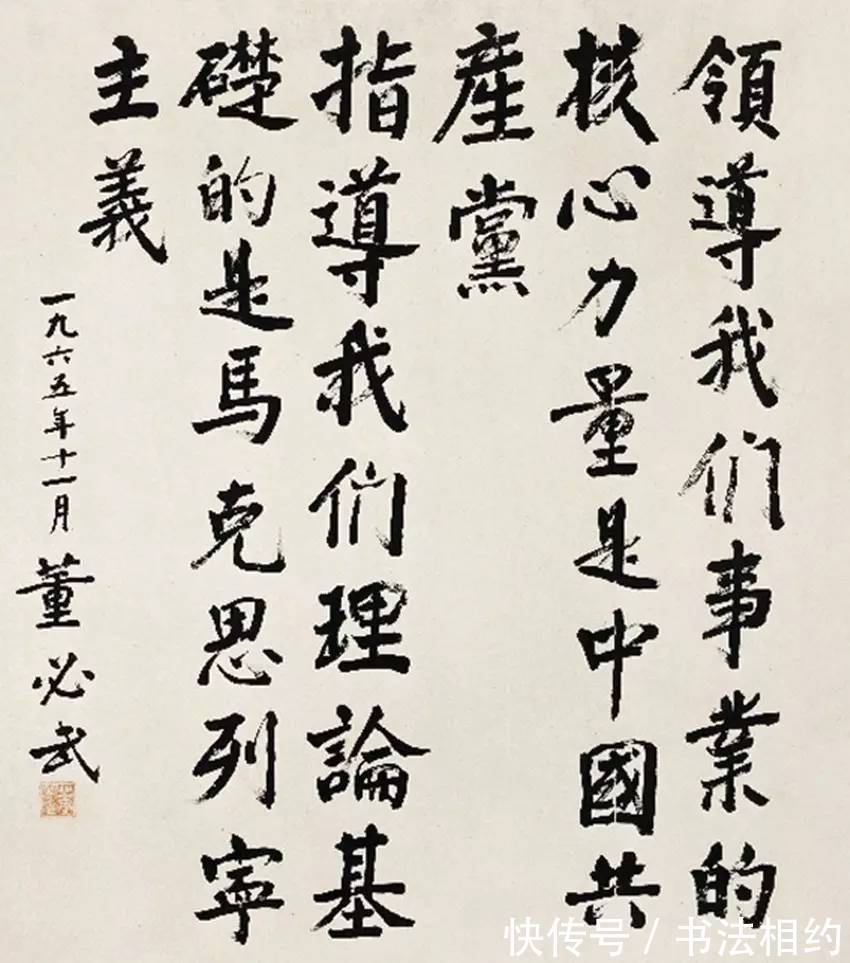 領導我们事業的
核心力量是中國共
産黨
指導我们理論基
礎的是馬克思列寧
主義
一九六五年十一月 董必武
快传号 / 书法相约